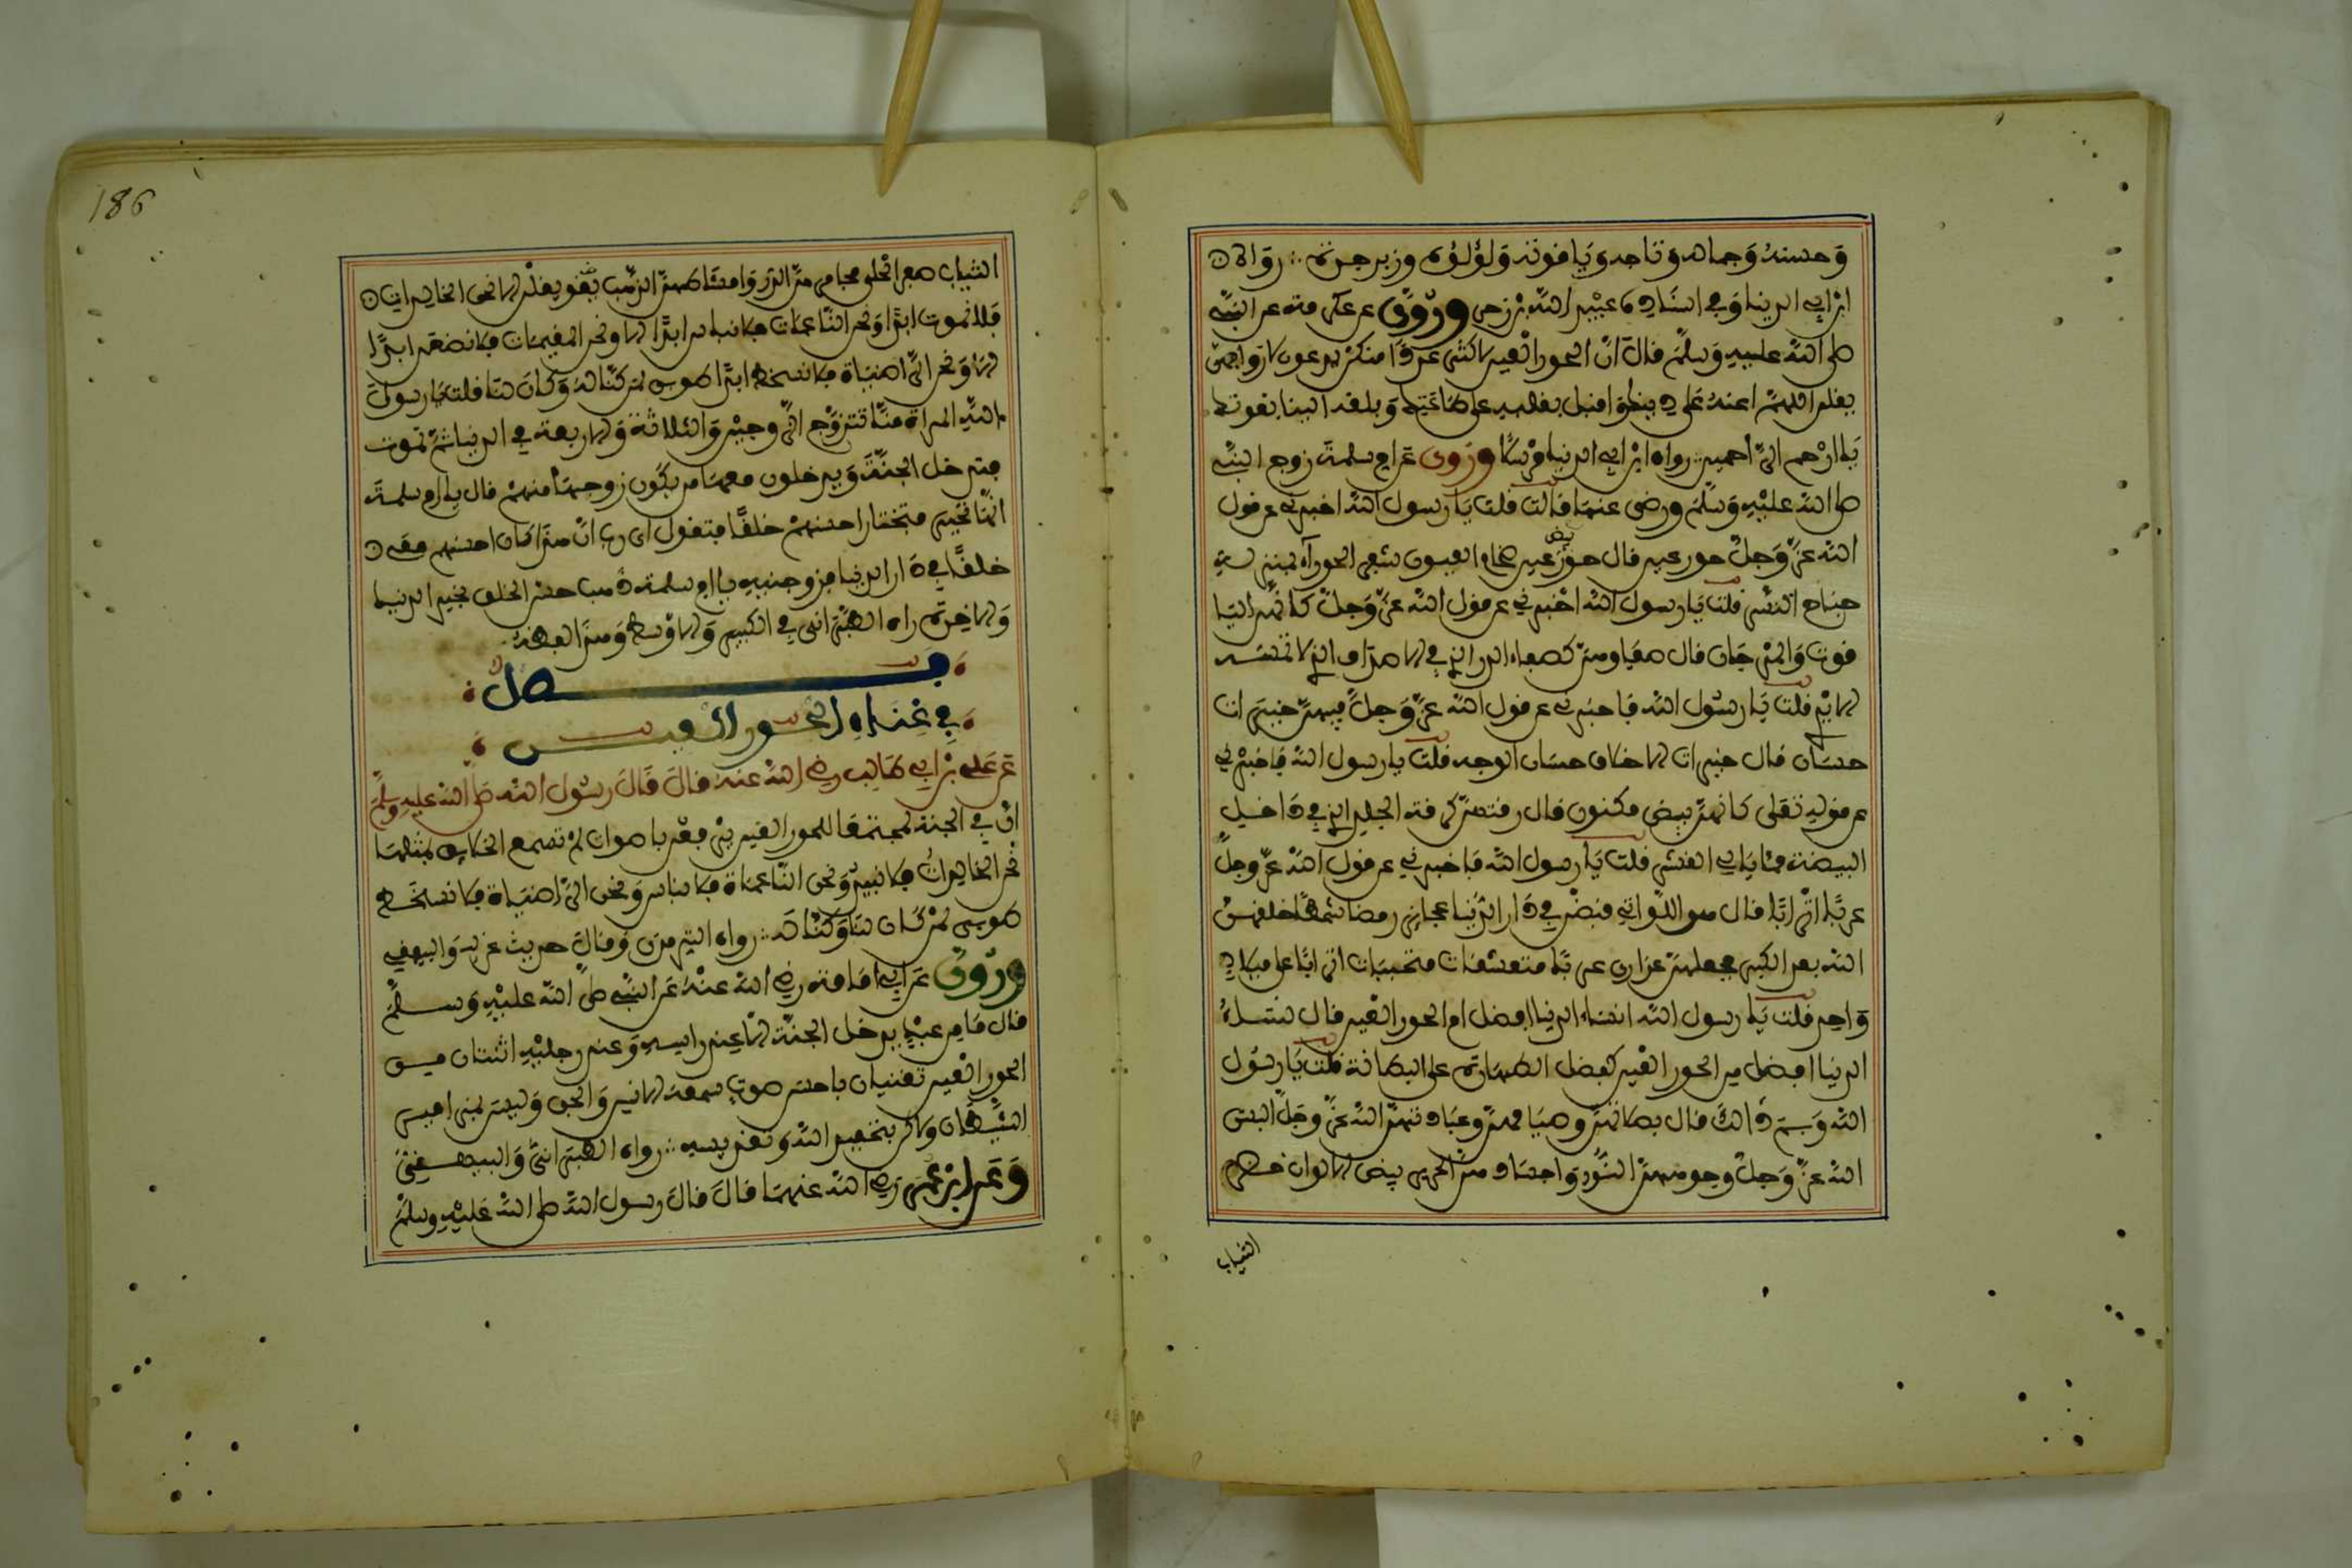 وحسنه وجماله وتاجه وياقوته ولؤلؤه وزبرجده رواه
ابن ابي الدنيا وفي اسناده عبيد الله بن زحر وروي عن عكرمة عن النبي
صلى الله عليه وسلم قال ان الحور العين لاكثر عددا منكن يدعون لازواجهن
يقلن اللهم اعنه على دينك واقبل بقلبه على طاعتك وبلغه الينا بقوتك
يا ارحم الراحمين رواه ابن ابي الدنيا مرسلا وروي عن ام سلمة زوج النبي
صلى الله عليه وسلم ورضي عنها قالت قلت يا رسول الله اخبرني عن قول
الله عز وجل حور عين قال حور بيض عين ضخام العيون شفر الحوراء بمنزلة
جناح النسر قلت يا رسول الله اخبرني عن قول الله عز وجل كانهن اليا
قوت والمرجان قال صفاوهن كصفاء الدر الذي في الاصداف الذي لا تمسه
الايد قلت يا رسول الله فاخبرني عن قول الله عز وجل فيهن خيرات
حسان قال خيرات الاخلاق حسان الوجه قلت يا رسول الله فاخبرني
عن قوله تعلى كانهن بيض مكنون قال رقتهن كرقة الجلد الذي في داخل
البيضة مما يلي القشر قلت يا رسول الله فاخبرني عن قول الله عز وجل
عربا اترابا قال هن اللواتي قبضن في دار الدنيا عجائز رمصا شمطا خلقهن
الله بعد الكبر فجعلهن عذارى عربا متعشقات متحببات اترابا على ميلاد
واحد قلت يا رسول الله انساء الدنيا افضل ام الحور العين قال نساء
الدنيا افضل من الحور العين كفضل الظهارة على البطانة قلت يا رسول
الله وبم ذالك قال بصلاتهن وصيامهن وعبادتهن الله عز وجل البس
الله عز وجل وجوههن النور واجسادهن الحرير بيض الالوان خضر
الثياب
186
الثياب صفر الحلي مجامرهن الدر وامشاطهن الذهب يقلن الا نحن الخالدات
فلا نموت ابدا ونحن الناعمات فلا نباس ابدا الا ونحن المقيمات فلا نضعن ابدا
الا ونحن الراضيات فلا نسخط ابدا طوبى لمن كنا له وكان لنا قلت يا رسول
الله المراة منا تتزوج الزوجين والثلاثة والاربعة في الدنيا ثم تموت
فتدخل الجنة ويدخلون معها من يكون زوجها منهم قال يا ام سلمة
انها تخير فتختار احسنهم خلقا فتقول اي رب ان هذا كان احسنهم معي
خلقا في دار الدنيا فزوجنيه يا ام سلمة ذهب حسن الخلق بخير الدنيا
والاخرة رواه الطبراني في الكبير والاوسط وهذا لفظه
فصل
في غناء الحور العين
عن علي بن ابي طالب رضي الله عنه قال قال رسول الله صلى الله عليه وسلم
ان في الجنة لمجتمعا للحور العين يرفعن باصوات لم تسمع الخلايق بمثلها
نحن الخالدات فلا نبيد ونحن الناعمات فلا نباس ونحن الراضيات فلا نسخط
طوبى لمن كان لنا وكنا له رواه الترمذي وقال حديث غريب والبيهقي
وروي عن ابي امامة رضي الله عنه عن النبي صلى الله عليه وسلم
قال ما من عبد يدخل الجنة الا عند راسه وعند رجليه اثنتان من
الحور العين تغنيان باحسن صوت سمعه الانس والجن وليس بمزامير
الشيطان ولاكن بتحميد الله وتقديسه رواه الطبراني والبيهقي
وعن ابن عمر رضي الله عنهما قال قال رسول الله صلى الله عليه وسلم